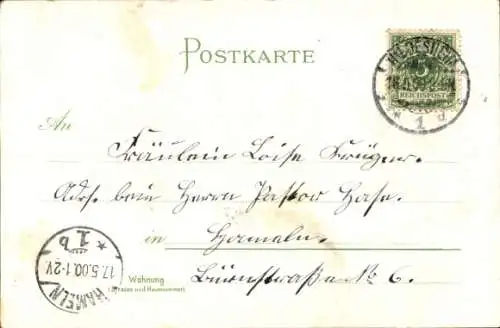 POSTKARTE
REICHSPOST
An
Fräulein Loise Krüger.
Adrs. bein Herrn Pastor Hase.
in Hameln.
Wohnung
(Strasse und Hausnummer)
Bürenstraße No 6.
* 1b
17.5.00.1-2V.
HAMELN
1 d